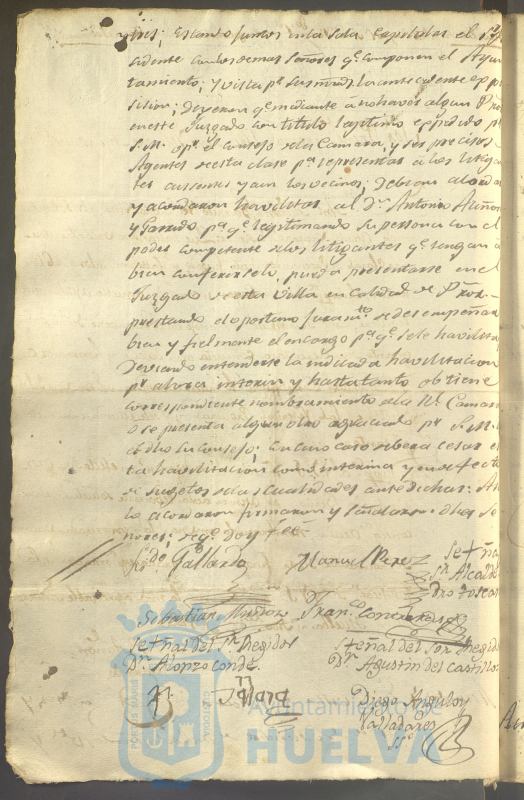 y tres; estando juntos en la Sala Capitular el Sr. Pre
sidente con los demas Señores q.e componen el Ayun
tamiento; y vista p.r sus mrds. la antecedente expo
sicion; Dijeron q.e mediante á no haver algun Pror.
en este Juzgado con titulo lexitimo expedido p.r
S.M. o p.r el Consejo de la Camara, y ser precisos
Agentes de esta clase p.a representar á los litigan
tes ausentes y aun los vecinos; debian acordar
y acordaron havilitar al D.n Antonio Muños
y Garrido p.a q.e legitimando su persona con el
poder competente de los litigantes q.e tengan a
bien conferirselo, pueda presentarse en el
Juzgado de esta Villa en calidad de Pror.
prestando el oportuno juram.to de desempeñar
bien y fielmente el encargo p.a q.e se le havilita
Deviendo entenderse la indicada havilitacion
p.r ahora interin y hasta tanto obtiene
correspondiente nombramiento de la R.l Camara
o se presenta algun otro agraciado p.r S.M.
ó dho su Consejo; en cuio caso deberá cesar es
ta havilitacion como interina y en defecto
de sugetos de las cualidades antedichas: Asi
lo acordaron firmaron y señalaron dhos Se
nores; de q.e doy fee
Gallardo
Manuel Perez
Se + ñal
Sr. Alcalde
Pro Toscan
Sebastian Muñoz
Fran.co Contreras
Se + ñal del Sr. Regidor
D.n Alonzo Conde.
S + eñal del Sor Regid
D.n Agustin del Castillo
Diego Angulo y
Valladares
SSo
Ayuntamiento de
HUELVA